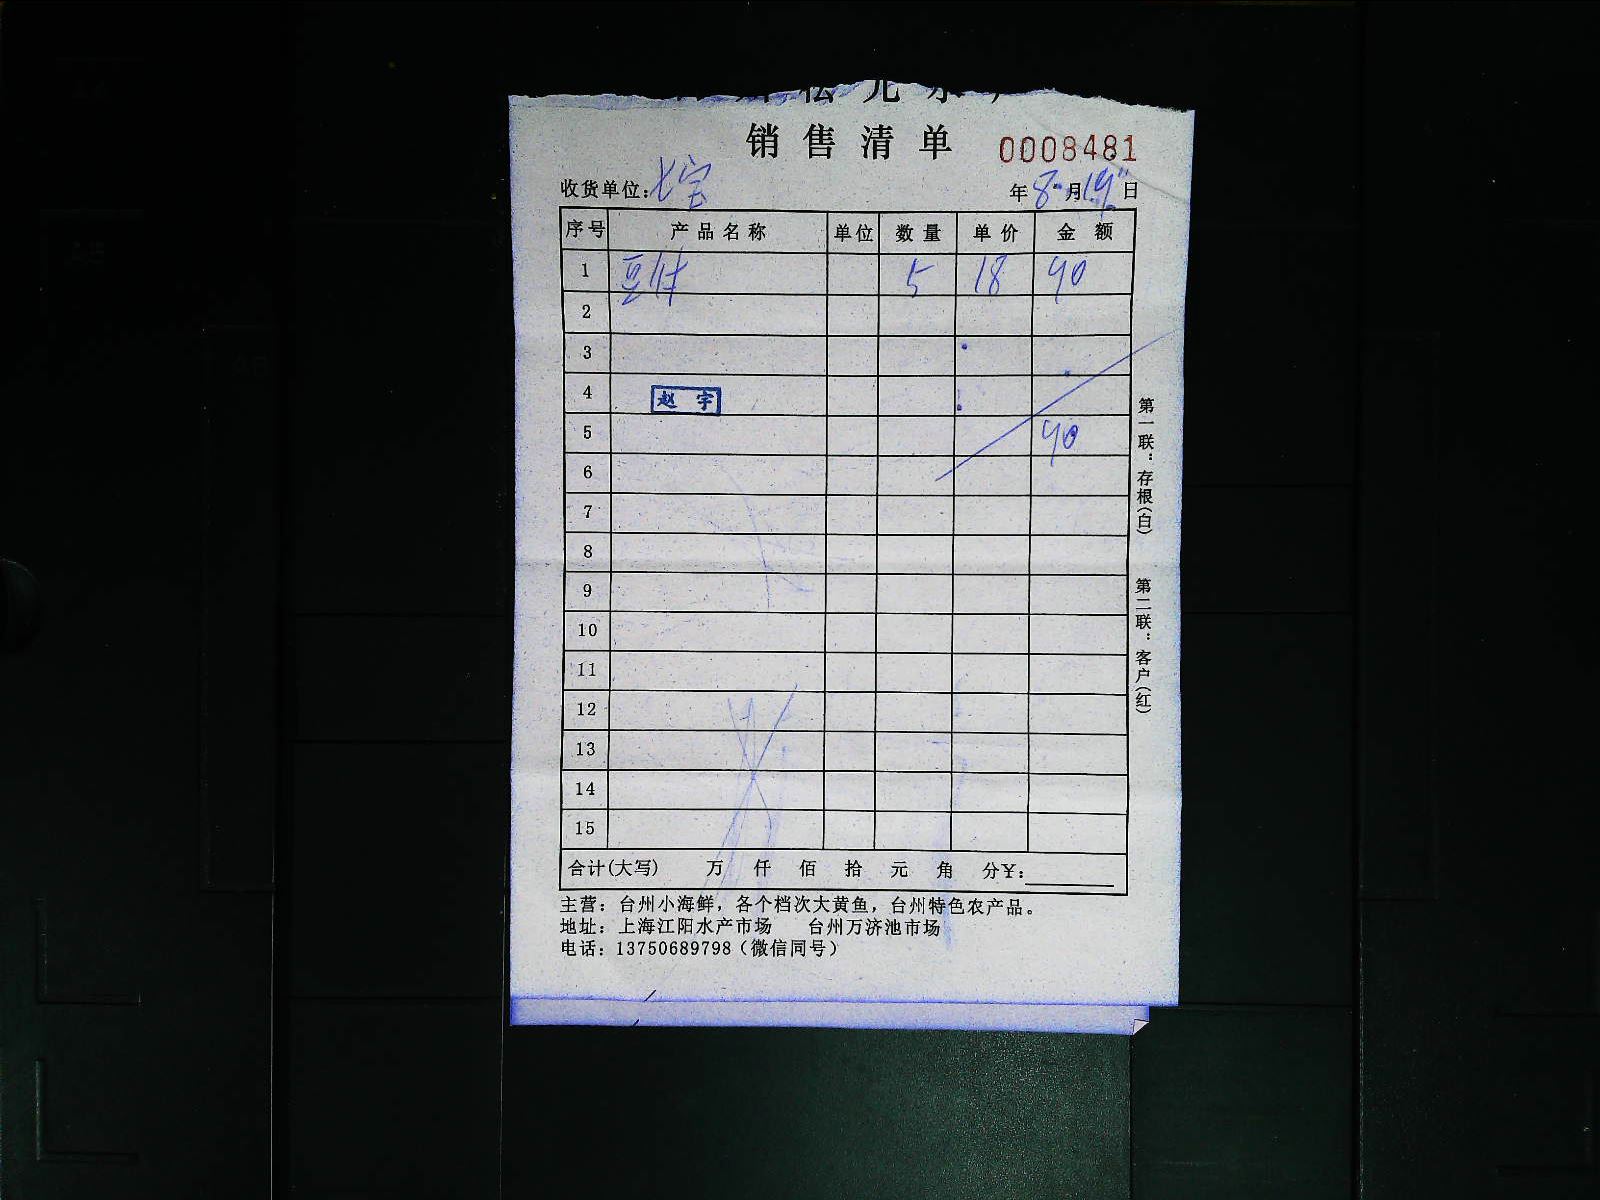 松元水产
销售清单 0008481
收货单位: 七宝 年 8 月 19 日
序号 产品名称 单位 数量 单价 金额
1 豆付 5 18 90
2
3
4 赵宇
5 90
6
7
8
9
10
11
12
13
14
15
合计(大写) 万 仟 佰 拾 元 角 分¥:
主营: 台州小海鲜, 各个档次大黄鱼, 台州特色农产品。
地址: 上海江阳水产市场 台州万济池市场
电话: 13750689798 (微信同号)
第一联: 存根(白)
第二联: 客户(红)